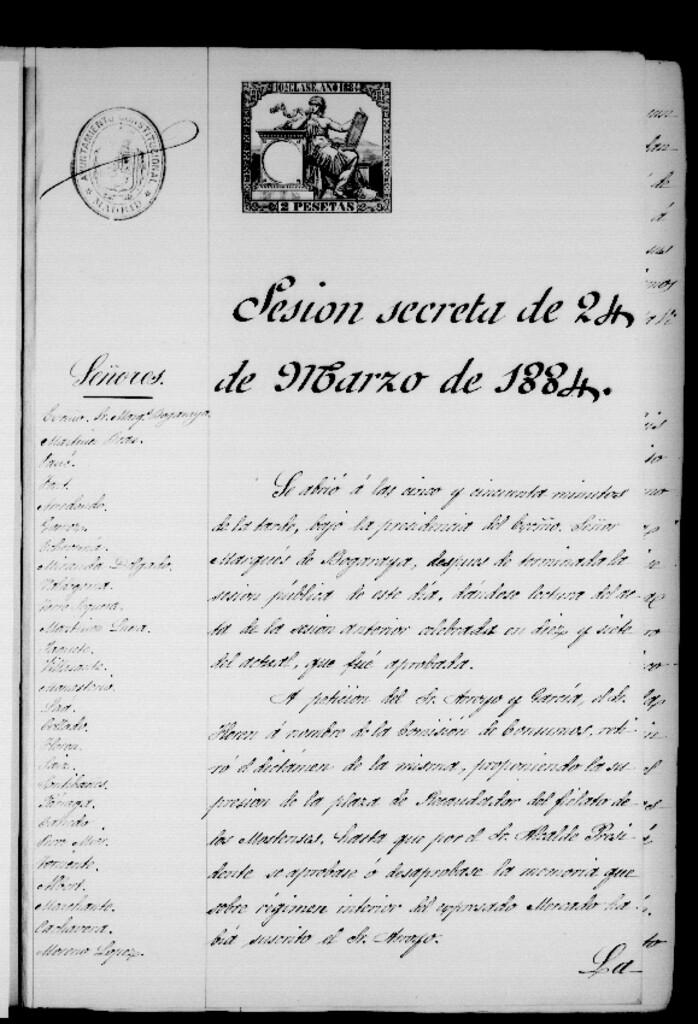 AYUNTAMIENTO CONSTITUCIONAL
MADRID
10ª CLASE. AÑO 1884
2 PESETAS
Sesion secreta de 24
de Marzo de 1884.
Señores.
Excmo. Sr. Marqs. Bogaraya.
Martinez Brau.
Arredondo.
Echevarría.
Miranda Delgado.
Martinez Luna.
Villasante.
Monasterio.
Collado.
Floren.
Saiz.
Santibañes.
Galindo.
Torriente.
Albert.
Marchante.
Cachavera.
Moreno Lopez.
Se abrió á las cinco y cincuenta minutos
de la tarde, bajo la presidencia del Excmo. Señor
Marqués de Bogaraya, despues de terminada la
sesion pública de este dia, dándose lectura del ac-
ta de la sesion anterior celebrada en diez y siete
del actual, que fué aprobada.
A peticion del Sr. Arroyo y García, el Sr.
Floren á nombre de la Comisión de Consumos, reti-
ró el dictámen de la misma, proponiendo la su-
presion de la plaza de Recaudador del fielato de
los Mostenses, hasta que por el Sr. Alcalde Presi-
dente se aprobase ó desaprobase la memoria que
sobre régimen interior del expresado Mercado ha-
biá suscrito el Sr. Arroyo.
La